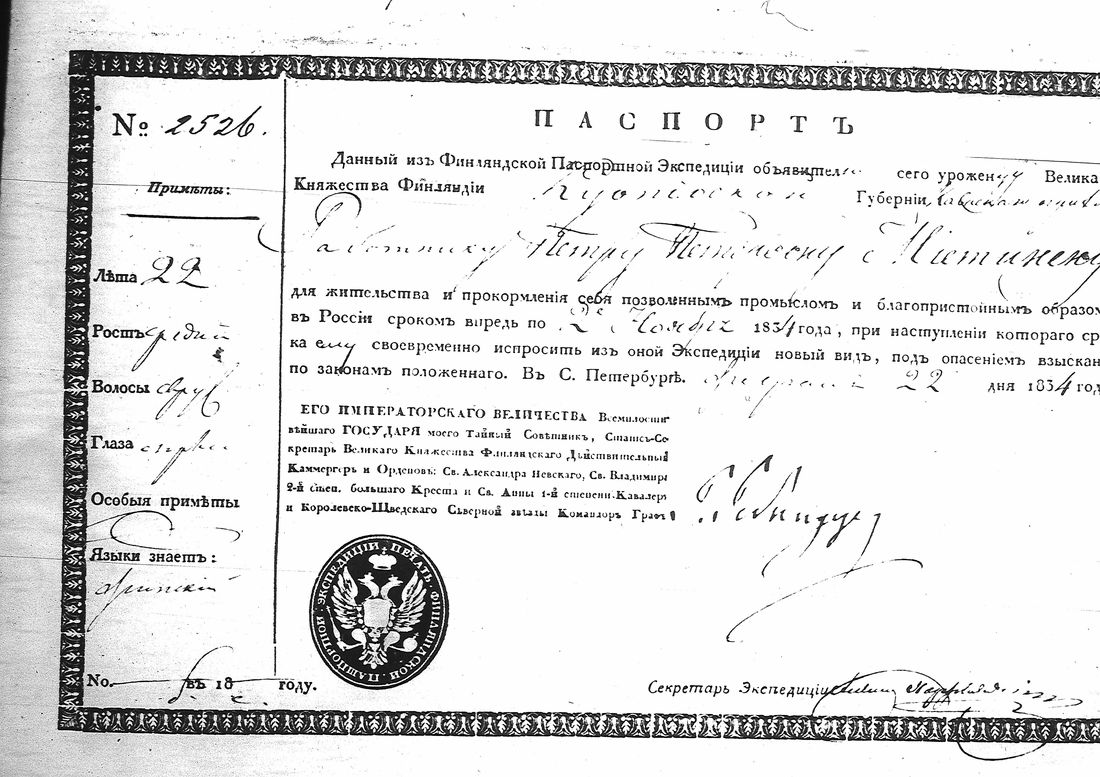 ПАСПОРТЪ
№ 2526.
Примѣты:
Данный изъ Финляндской Паспортной Экспедиціи объявителю сего уроженцу Велика
Княжества Финляндіи Куопіоской Губерніи
Работнику Петру
Лѣта 22
для жительства и прокормленія себя позволеннымъ промысломъ и благопристойнымъ образом
Ростъ средній
въ Россіи срокомъ впредь по 2е Ноября 1834 года, при наступленіи котораго ср
ка ему своевременно испросить изъ оной Экспедиціи новый видъ, подъ опасеніемъ взыскан
Волосы
по законамъ положеннаго. Въ С. Петербургѣ. 22 дня 1834 год
Глаза
ЕГО ИМПЕРАТОРСКАГО ВЕЛИЧЕСТВА Всемилости
вѣйшаго ГОСУДАРЯ моего Тайный Совѣтникъ, Статсъ-Се
кретарь Великаго Княжества Финляндскаго Дѣйствительный
Каммергеръ и Орденовъ: Св. Александра Невскаго, Св. Владимира
2-й степ. большаго Креста и Св. Анны 1-й степени Кавалеръ
и Королевско-Шведскаго Сѣверной звѣзды Командоръ Графъ
Особыя примѣты
Языки знаетъ:
финскій
ПЕЧАТЬ ФИНЛЯНДСКОЙ ПАШПОРТНОЙ ЭКСПЕДИЦІИ
No. въ 18 году.
Секретарь Экспедиціи